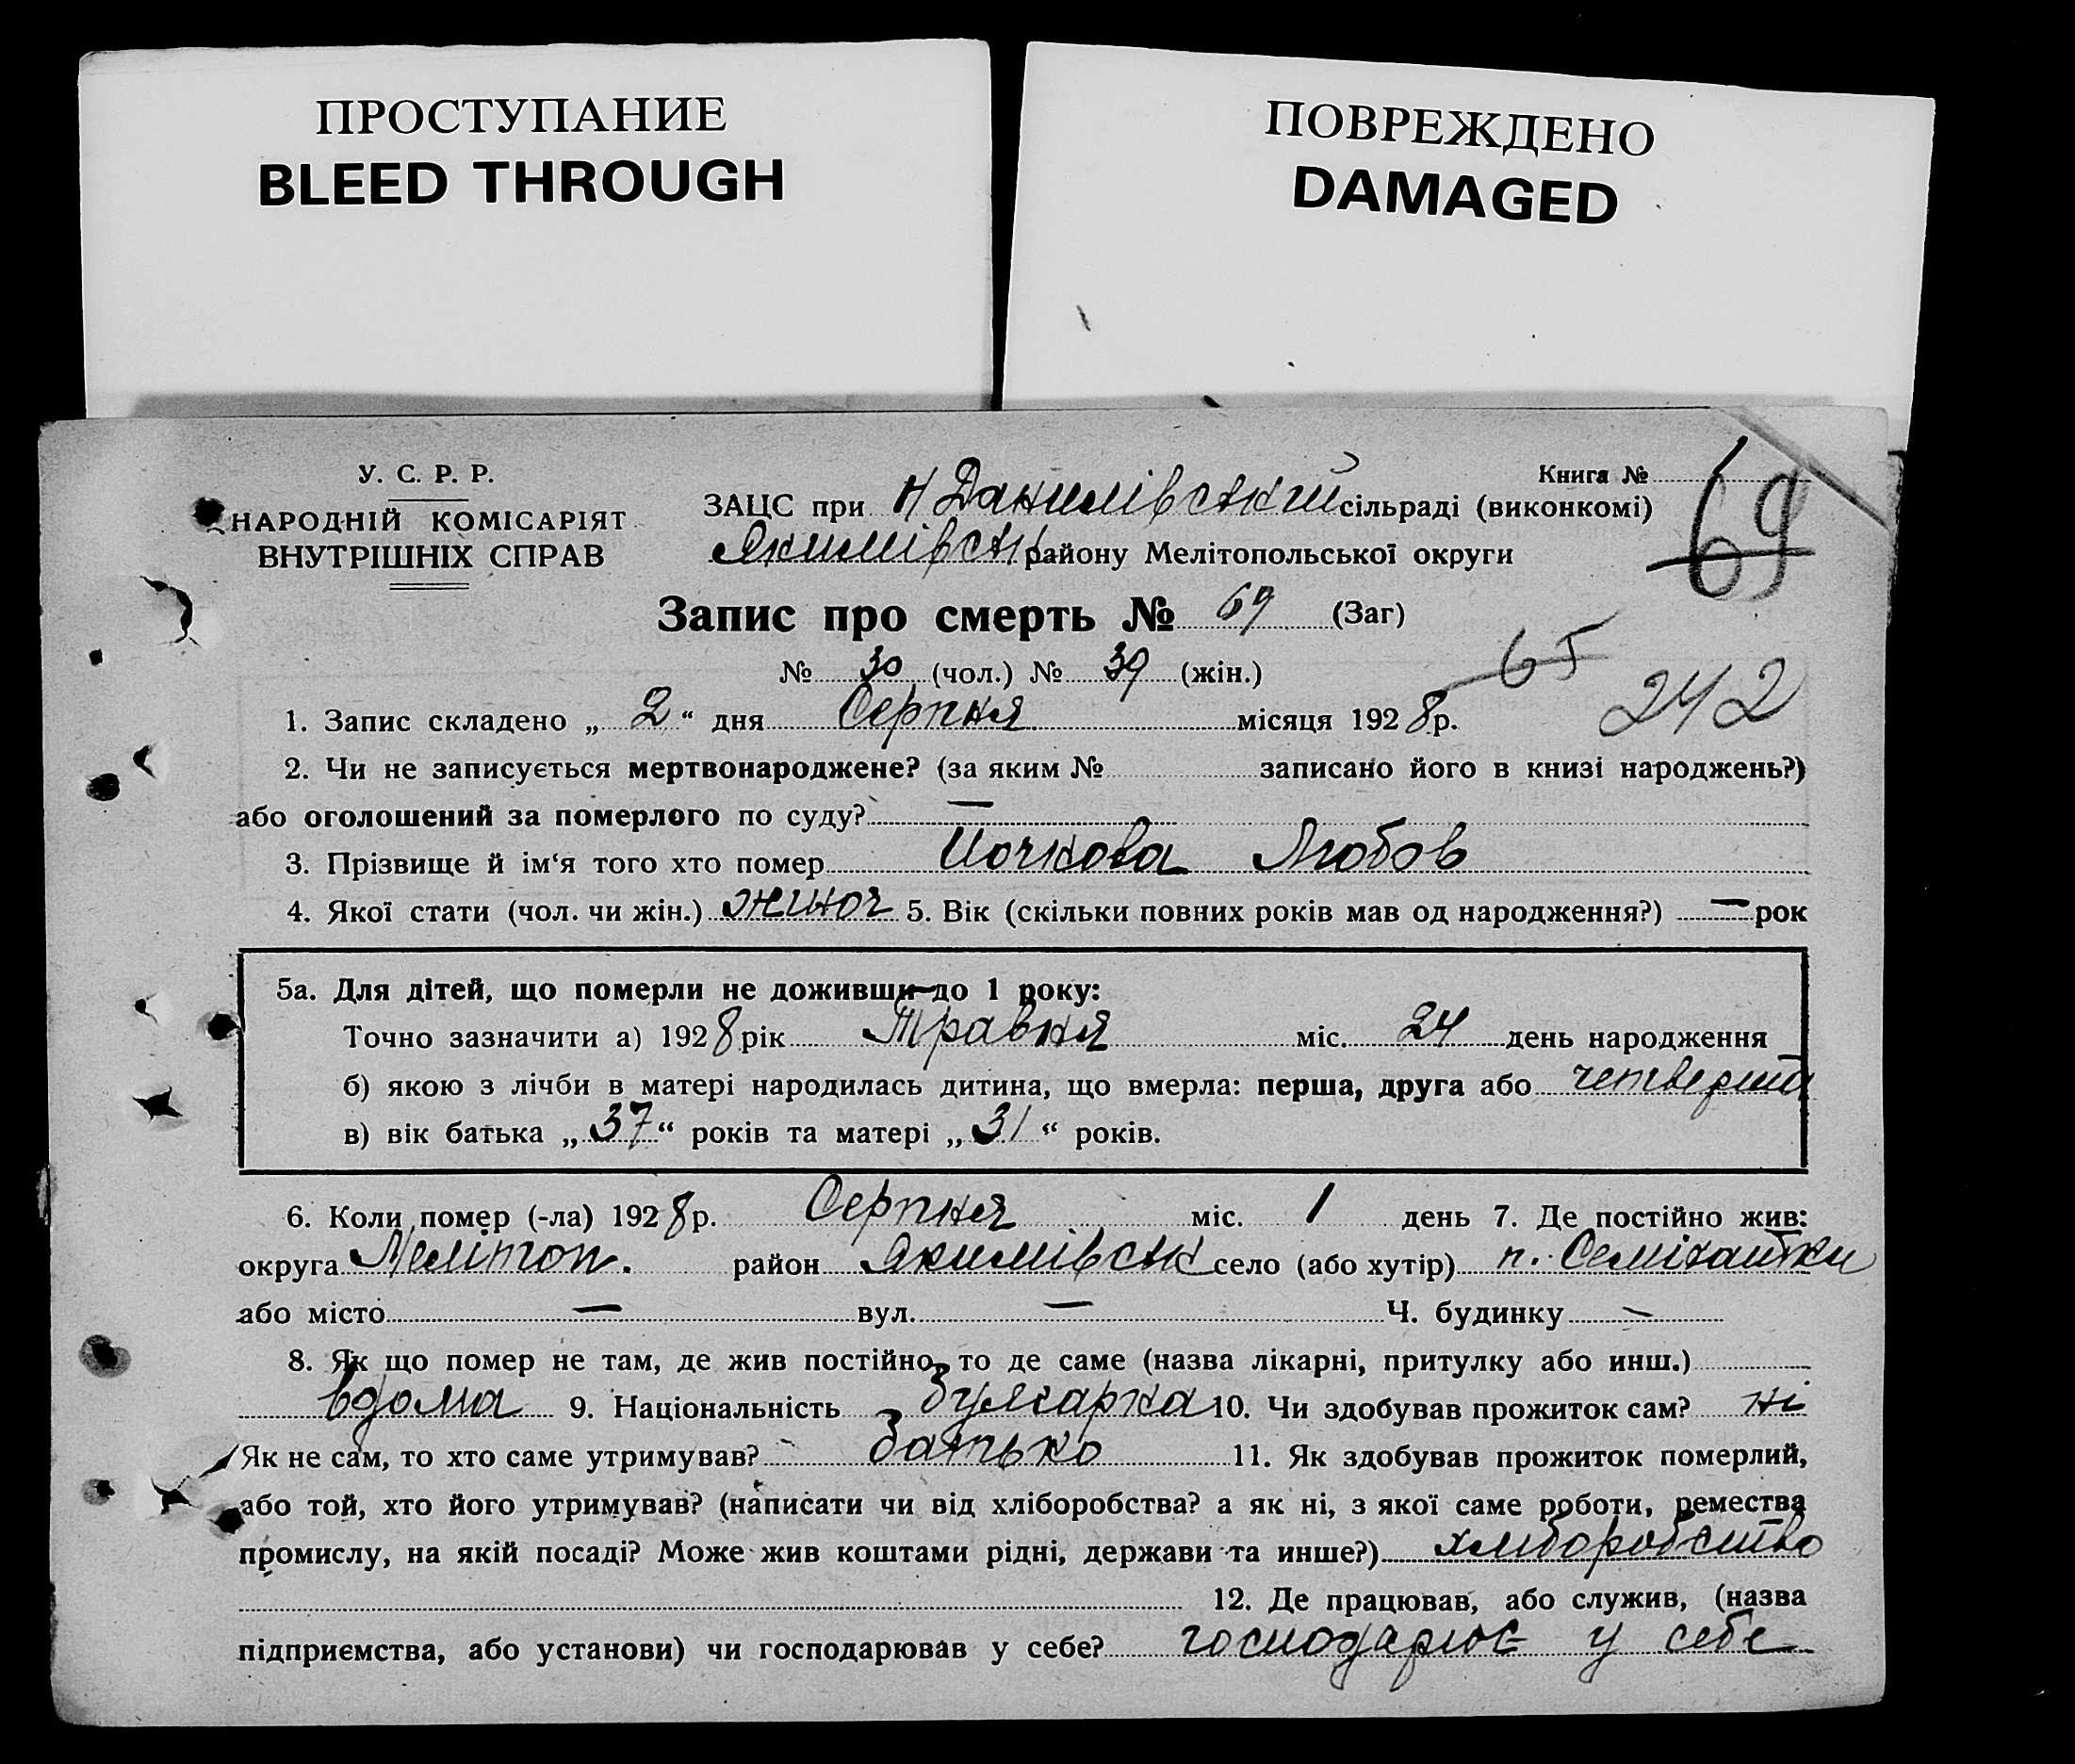 ПРОСТУПАНИЕ
BLEED THROUGH
ПОВРЕЖДЕНО
DAMAGED
У. С. Р. Р.
НАРОДНІЙ КОМІСАРІЯТ
ВНУТРІШНІХ СПРАВ
Книга №
69
ЗАЦС при Н Данилівський сільраді (виконкомі)
Якимівськ району Мелітопольської округи
Запис про смерть № 69 (Заг)
65
№ 30 (чол.) № 39 (жін.)
242
1. Запис складено „ 2 “ дня Серпня місяця 1928 р.
2. Чи не записується мертвонароджене? (за яким № записано його в книзі народжень?)
або оголошений за померлого по суду? —
3. Прізвище й ім‘я того хто помер Почкова Любов
4. Якої стати (чол. чи жін.) жиноч 5. Вік (скільки повних років мав од народження?) — рок
5а. Для дітей, що померли не доживши до 1 року:
Точно зазначити а) 1928 рік Травня міс. 24 день народження
б) якою з лічби в матері народилась дитина, що вмерла: перша, друга або четверта
в) вік батька „ 37 “ років та матері „ 31 “ років.
6. Коли помер (-ла) 1928 р. Серпня міс. 1 день 7. Де постійно жив:
округа Меліпоп. район Якимівськ село (або хутір) п. Семіхатки
або місто — вул. — Ч. будинку —
8. Як що помер не там, де жив постійно, то де саме (назва лікарні, притулку або инш.)
вдома 9. Національність булгарка 10. Чи здобував прожиток сам? ні
Як не сам, то хто саме утримував? батько 11. Як здобував прожиток померлий,
або той, хто його утримував? (написати чи від хліборобства? а як ні, з якої саме роботи, ремества
промислу, на якій посаді? Може жив коштами рідні, держави та инше?) хліборобство
12. Де працював, або служив, (назва
підприємства, або установи) чи господарював у себе? господарює у себе